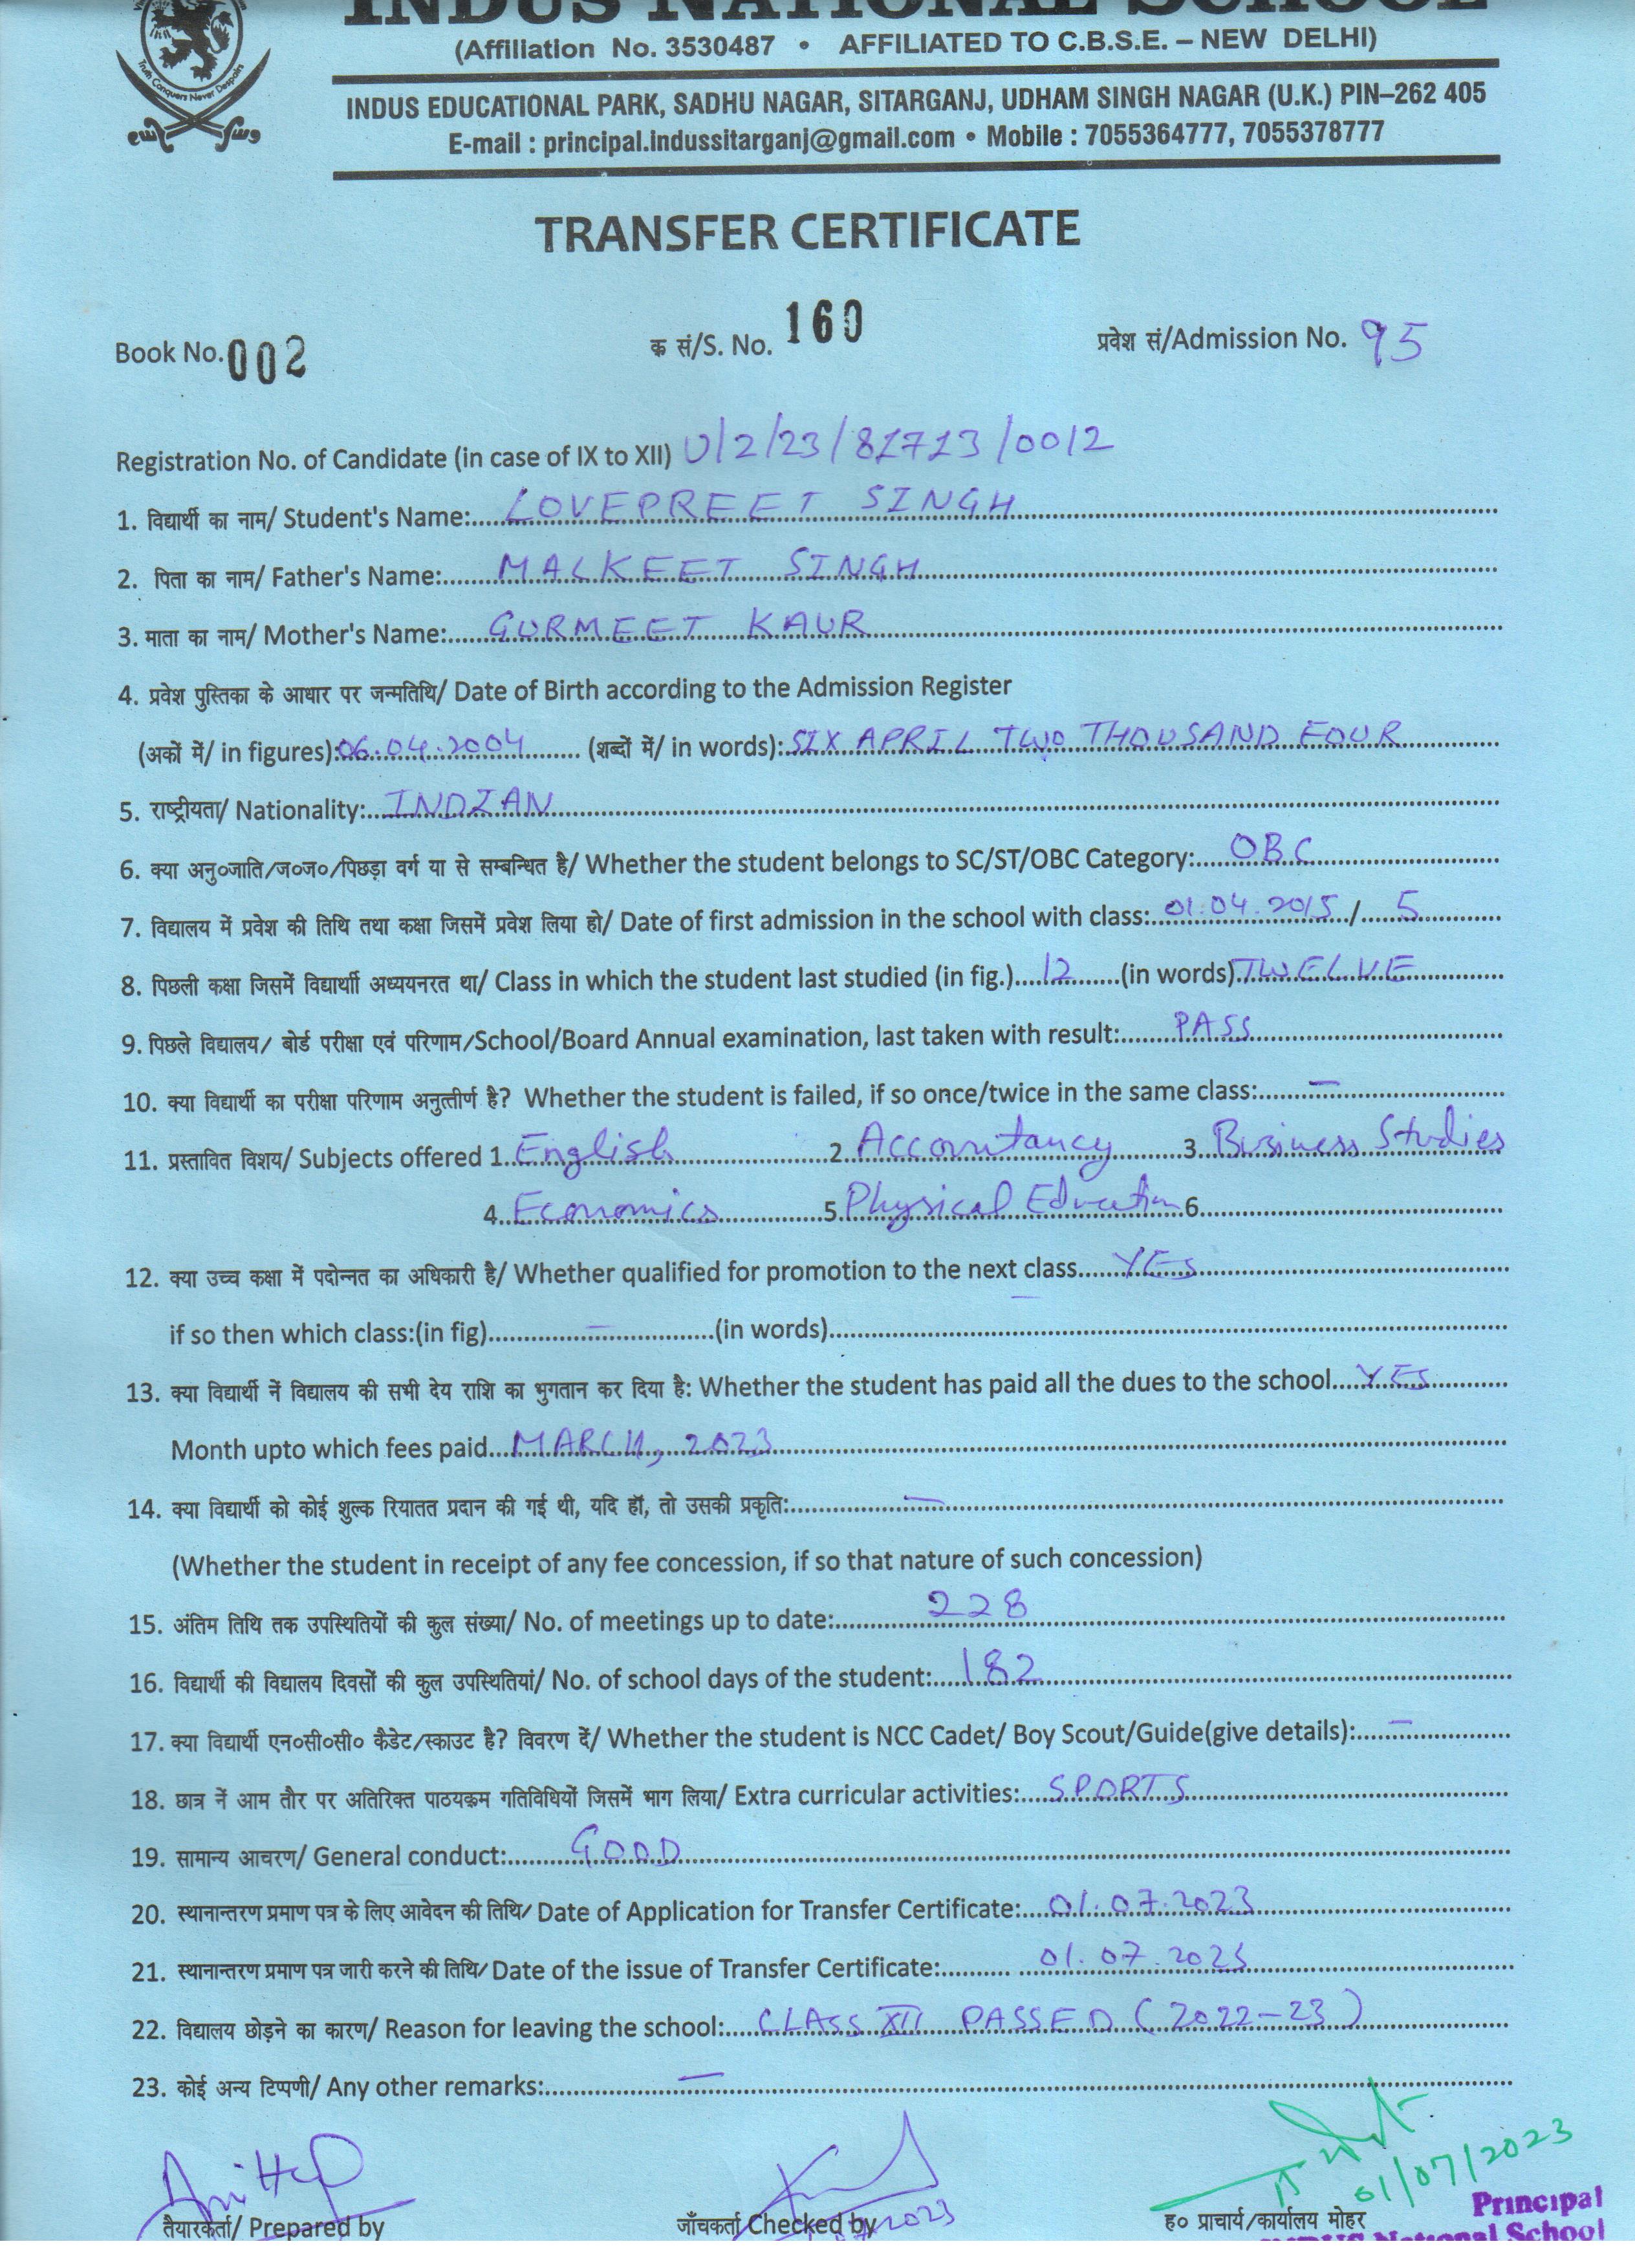 INDUS NATIONAL SCHOOL
Truth Conquers Never Despairs
(Affiliation No. 3530487 • AFFILIATED TO C.B.S.E. – NEW DELHI)
INDUS EDUCATIONAL PARK, SADHU NAGAR, SITARGANJ, UDHAM SINGH NAGAR (U.K.) PIN–262 405
E-mail : principal.indussitarganj@gmail.com • Mobile : 7055364777, 7055378777
TRANSFER CERTIFICATE
Book No. 002 क सं/S. No. 160 प्रवेश सं/Admission No. 95
Registration No. of Candidate (in case of IX to XII) U/2/23/81713/0012
1. विद्यार्थी का नाम/ Student's Name: LOVEPREET SINGH
2. पिता का नाम/ Father's Name: MALKEET SINGH
3. माता का नाम/ Mother's Name: GURMEET KAUR
4. प्रवेश पुस्तिका के आधार पर जन्मतिथि/ Date of Birth according to the Admission Register
(अकों में/ in figures): 06.04.2004 (शब्दों में/ in words): SIX APRIL TWO THOUSAND FOUR
5. राष्ट्रीयता/ Nationality: INDIAN
6. क्या अनु०जाति/ज०ज०/पिछड़ा वर्ग या से सम्बन्धित है/ Whether the student belongs to SC/ST/OBC Category: OBC
7. विद्यालय में प्रवेश की तिथि तथा कक्षा जिसमें प्रवेश लिया हो/ Date of first admission in the school with class: 01.04.2015 / 5
8. पिछली कक्षा जिसमें विद्यार्थाी अध्ययनरत था/ Class in which the student last studied (in fig.) 12 (in words) TWELVE
9. पिछले विद्यालय/ बोर्ड परीक्षा एवं परिणाम/School/Board Annual examination, last taken with result: PASS
10. क्या विद्यार्थी का परीक्षा परिणाम अनुत्तीर्ण है? Whether the student is failed, if so once/twice in the same class: —
11. प्रस्तावित विशय/ Subjects offered 1. English 2. Accountancy 3. Business Studies
4. Economics 5. Physical Education 6.
12. क्या उच्च कक्षा में पदोन्नत का अधिकारी है/ Whether qualified for promotion to the next class YES
if so then which class:(in fig) — (in words) —
13. क्या विद्यार्थी नें विद्यालय की सभी देय राशि का भुगतान कर दिया है: Whether the student has paid all the dues to the school YES
Month upto which fees paid MARCH, 2023
14. क्या विद्यार्थी को कोई शुल्क रियातत प्रदान की गई थी, यदि हॉ, तो उसकी प्रकृति: —
(Whether the student in receipt of any fee concession, if so that nature of such concession)
15. अंतिम तिथि तक उपस्थितियों की कुल संख्या/ No. of meetings up to date: 228
16. विद्यार्थी की विद्यालय दिवसों की कुल उपस्थितियां/ No. of school days of the student: 182
17. क्या विद्यार्थी एन०सी०सी० कैडेट/स्काउट है? विवरण दें/ Whether the student is NCC Cadet/ Boy Scout/Guide(give details): —
18. छात्र नें आम तौर पर अतिरिक्त पाठयक्रम गतिविधियों जिसमें भाग लिया/ Extra curricular activities: SPORTS
19. सामान्य आचरण/ General conduct: GOOD
20. स्थानान्तरण प्रमाण पत्र के लिए आवेदन की तिथि/ Date of Application for Transfer Certificate: 01.07.2023
21. स्थानान्तरण प्रमाण पत्र जारी करने की तिथि/ Date of the issue of Transfer Certificate: 01.07.2023
22. विद्यालय छोड़ने का कारण/ Reason for leaving the school: CLASS XII PASSED (2022-23)
23. कोई अन्य टिप्पणी/ Any other remarks: —
01/07/2023
तैयारकर्ता/ Prepared by जाँचकर्ता Checked by ह० प्राचार्य/कार्यालय मोहर
Principal
INDUS National School